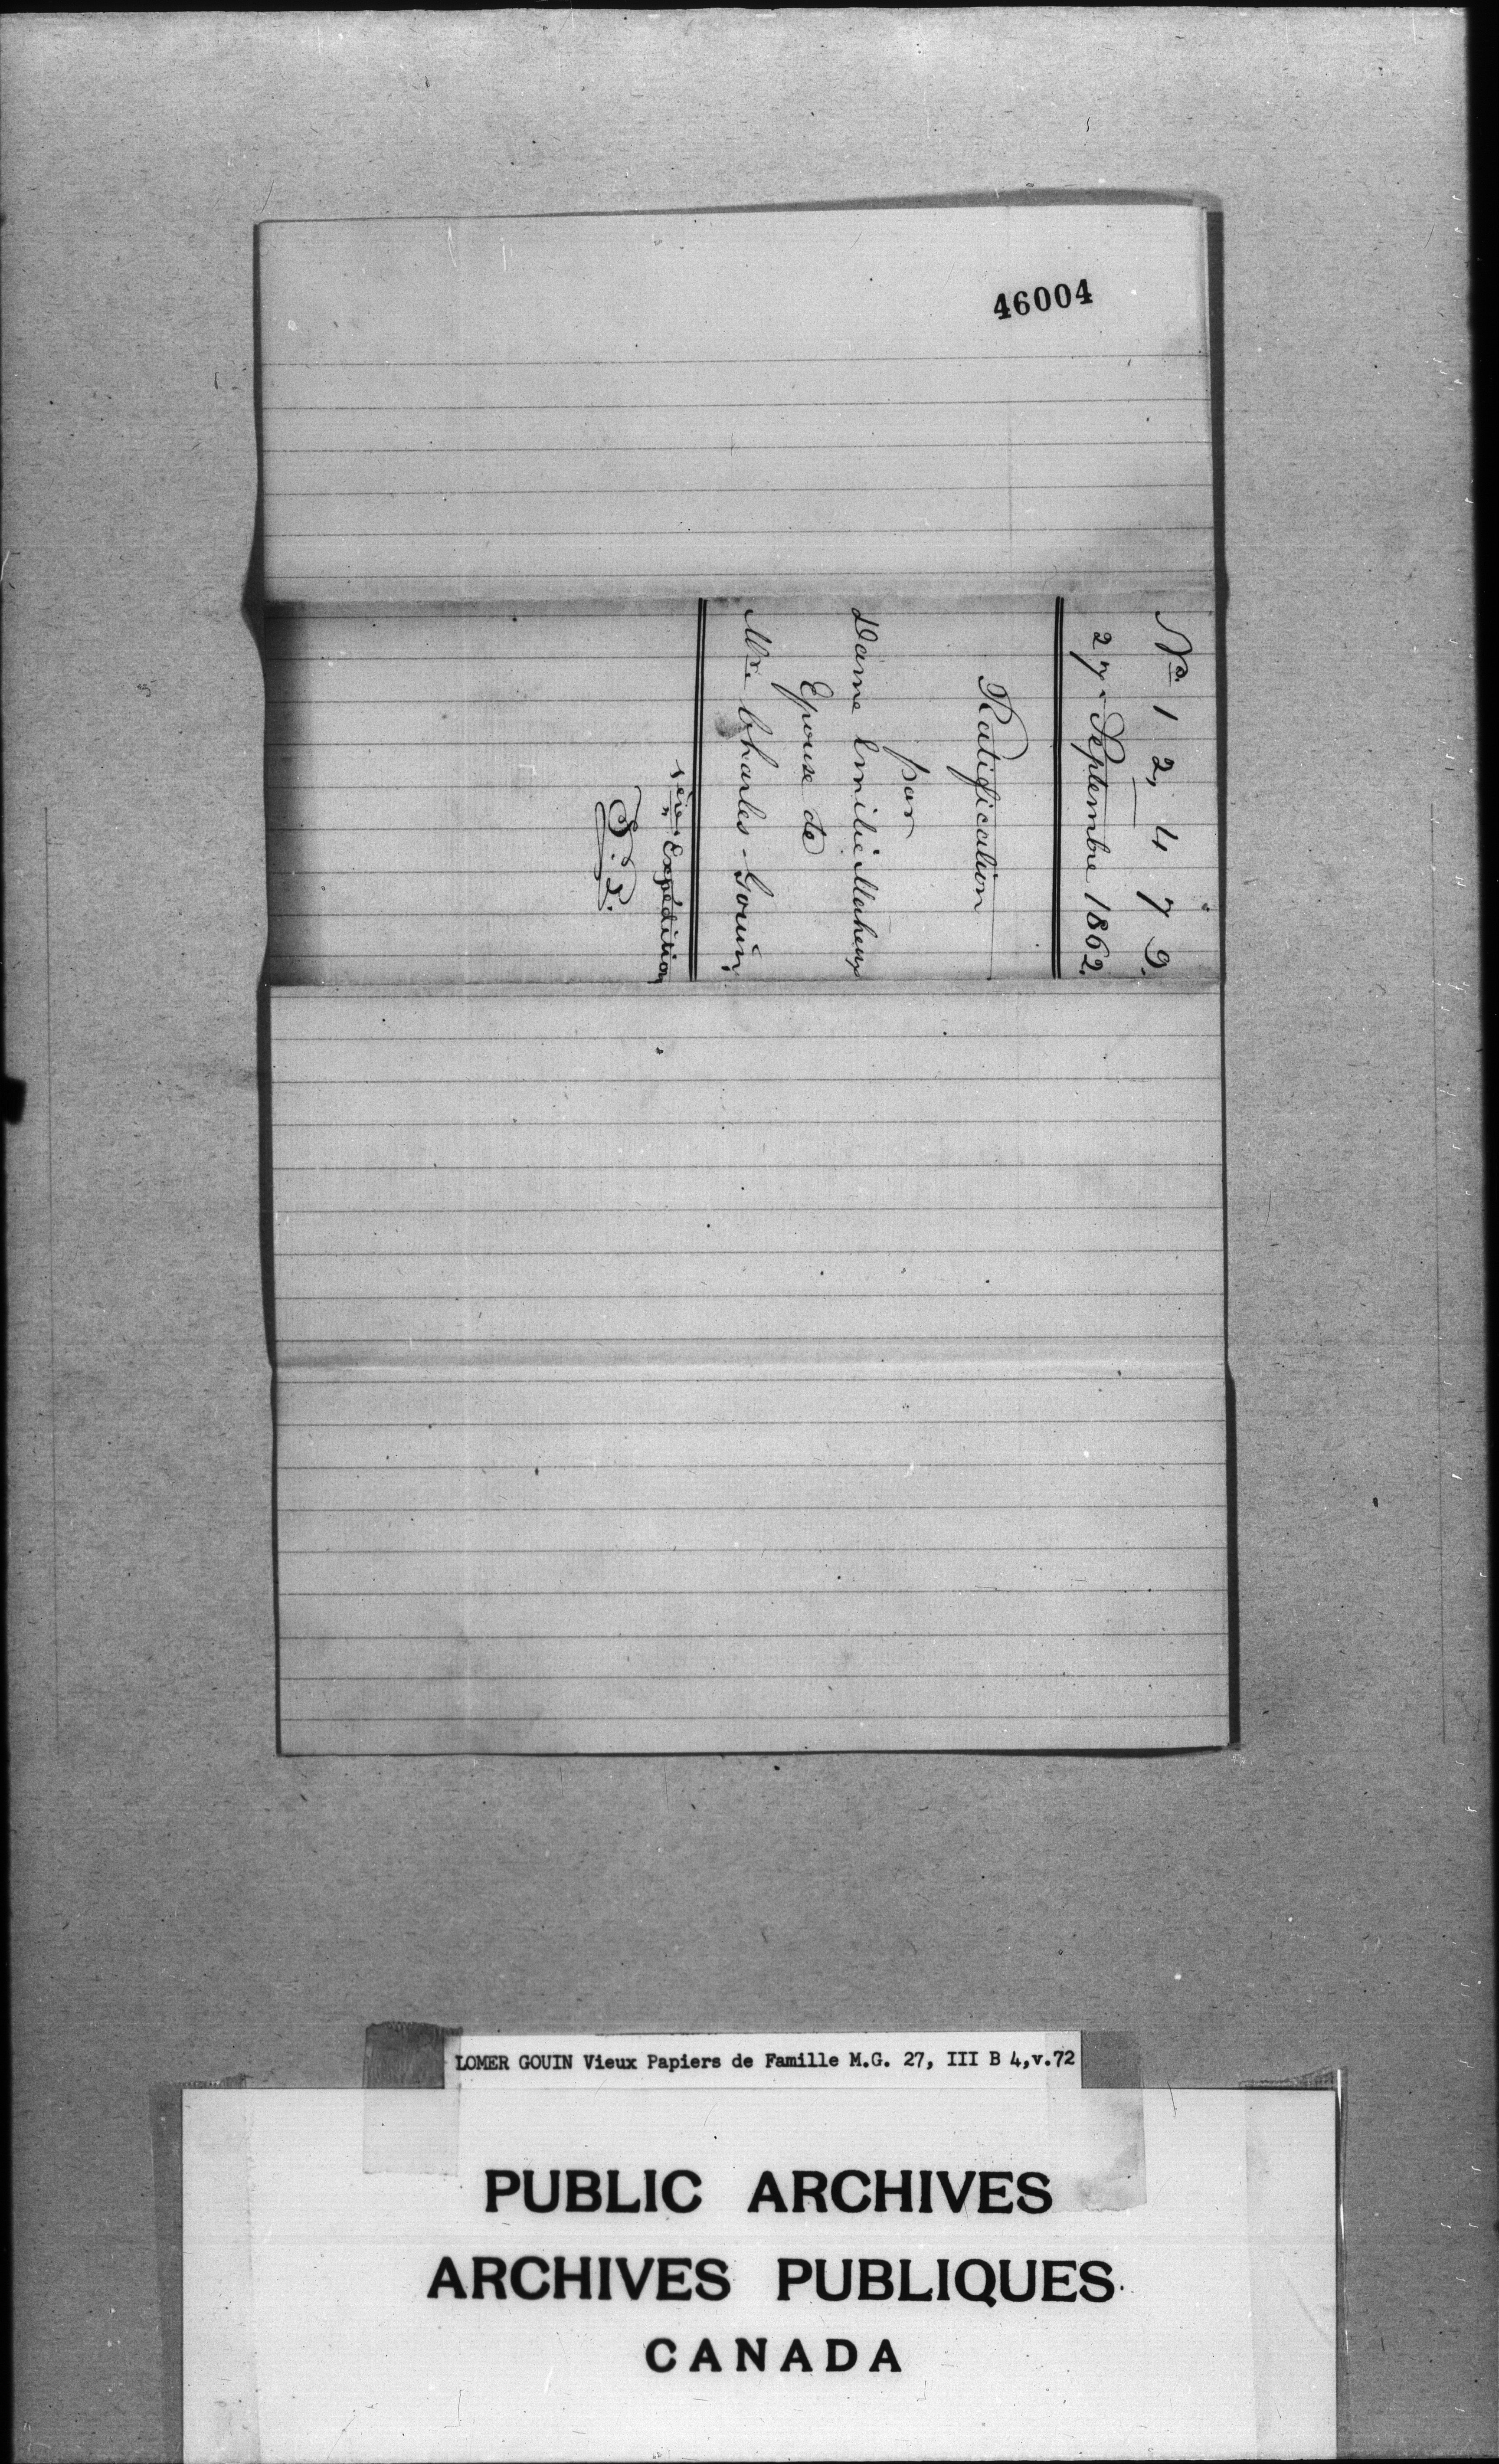 46004
No. 12,479.
27 - Septembre 1862.
Ratification
par
Dame Emilie Maheux
Epouse de
Mre Charles - Gouin,
1ère Expédition
LOMER GOUIN Vieux Papiers de Famille M.G. 27, III B 4,v.72
PUBLIC ARCHIVES
ARCHIVES PUBLIQUES
CANADA